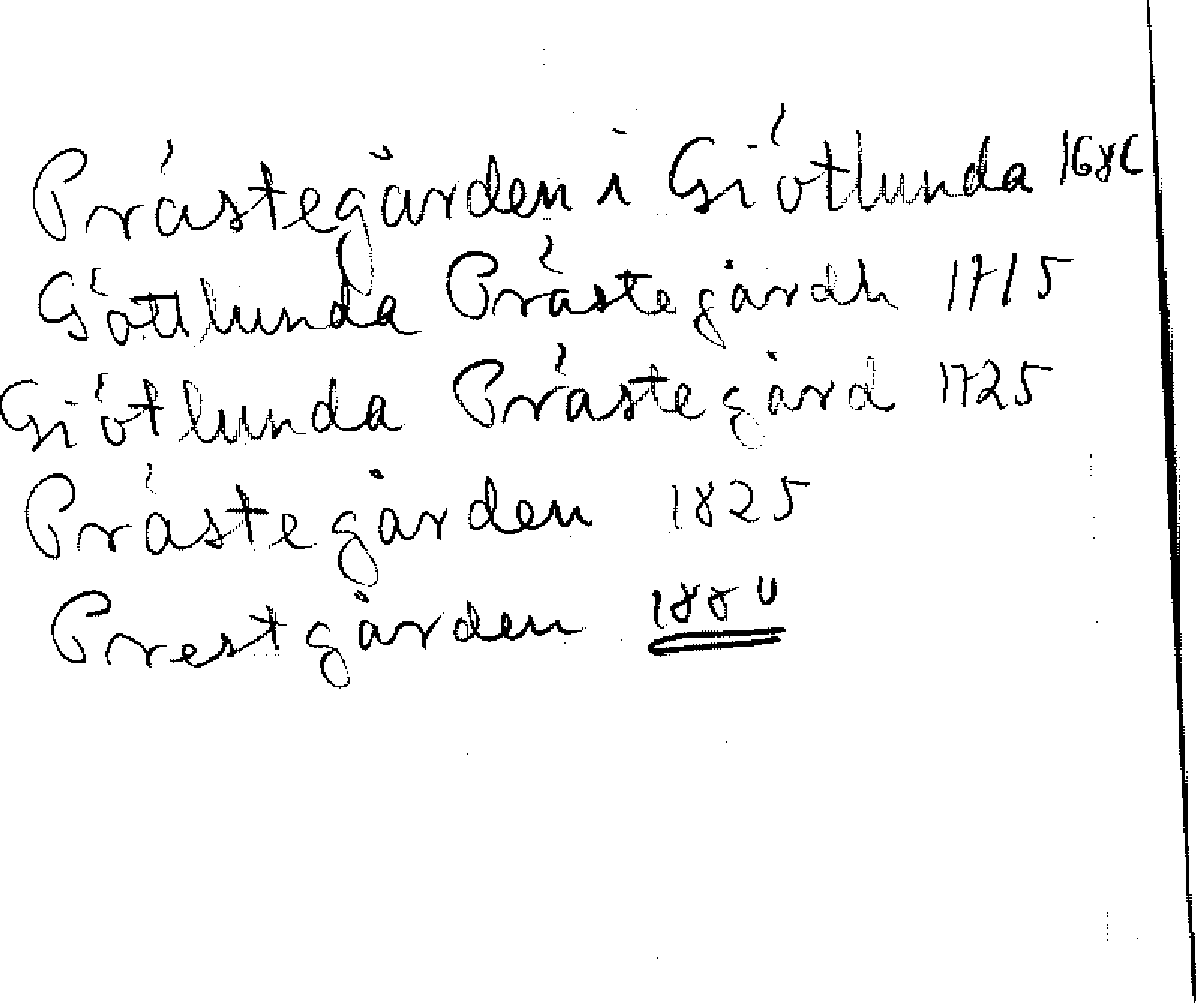 Prästegården i Giötlunda 1686
Götlunda Prästegårdh 1715
Giötlunda Prästegård 1725
Prästegården 1825
Prestgården 1880